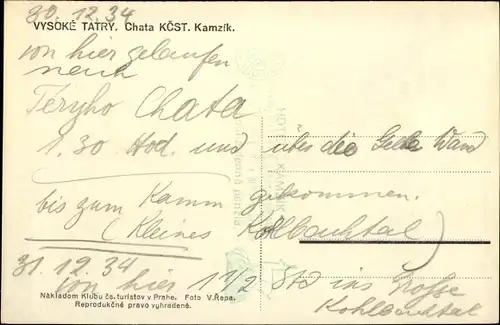 30.12.34
VYSOKÉ TATRY. Chata KČST. Kamzík.
von hier gelaufen
nach
Téryho Chata
1.30 Hod. und über die Gelbe Wand
bis zum Kamm gekommen.
(Kleines Kolbachtal)
31.12.34
von hier 1 1/2 Std ins Grosse
Kohlbachtal
Nákladem Klubu čs. turistov v Prahe. Foto V. Řepa.
Reprodukčné pravo vyhradené.
HOTEL KAMZÍK